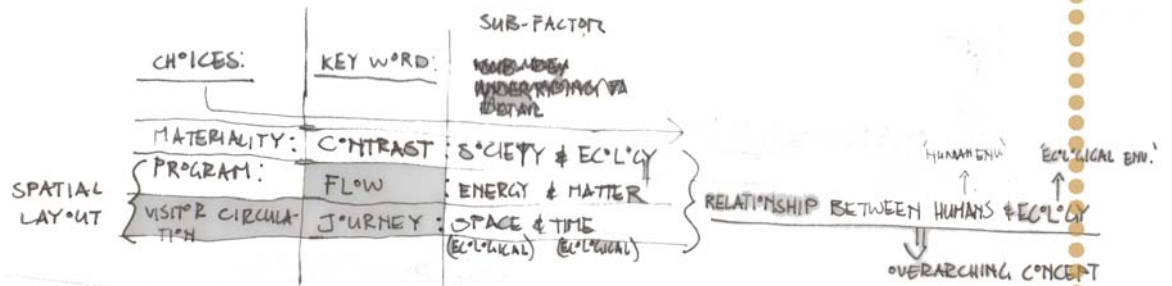 SUB-FACTOR
CHOICES: KEY WORD:
DETAIL
MATERIALITY: CONTRAST: SOCIETY & ECOLOGY
PROGRAM: FLOW : ENERGY & MATTER
SPATIAL LAYOUT
VISITOR CIRCULA-
TION
JOURNEY : SPACE & TIME
(ECOLOGICAL) (ECOLOGICAL)
'HUMAN ENV.' 'ECOLOGICAL ENV.'
RELATIONSHIP BETWEEN HUMANS & ECOLOGY
OVERARCHING CONCEPT